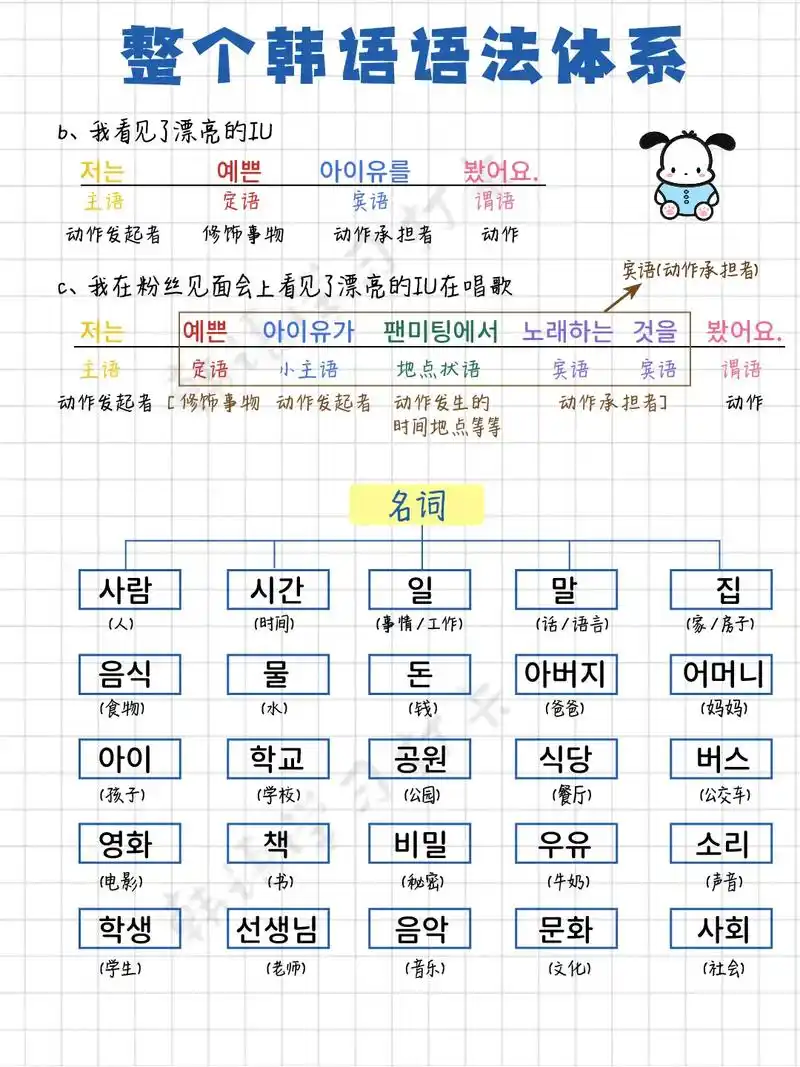 整个韩语语法体系
b、我看见了漂亮的IU
저는 예쁜 아이유를 봤어요.
主语 定语 宾语 谓语
动作发起者 修饰事物 动作承担者 动作
宾语(动作承担者)
c、我在粉丝见面会上看见了漂亮的IU在唱歌
저는 예쁜 아이유가 팬미팅에서 노래하는 것을 봤어요.
主语 定语 小主语 地点状语 宾语 宾语 谓语
动作发起者 [修饰事物 动作发起者 动作发生的 动作承担者] 动作
时间地点等等
名词
사람 시간 일 말 집
(人) (时间) (事情/工作) (话/语言) (家/房子)
음식 물 돈 아버지 어머니
(食物) (水) (钱) (爸爸) (妈妈)
아이 학교 공원 식당 버스
(孩子) (学校) (公园) (餐厅) (公交车)
영화 책 비밀 우유 소리
(电影) (书) (秘密) (牛奶) (声音)
학생 선생님 음악 문화 사회
(学生) (老师) (音乐) (文化) (社会)
韩语学习打卡
韩语学习打卡